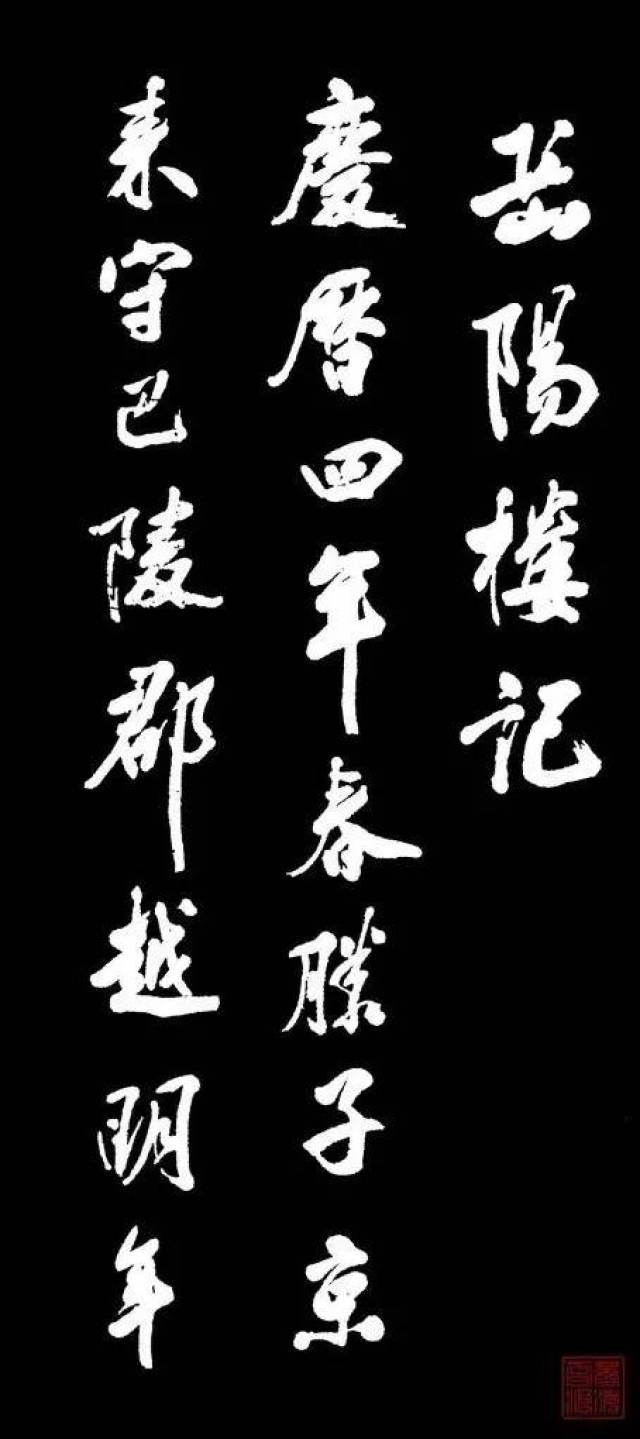 岳陽樓記
慶曆四年春滕子京
来守巴陵郡越明年